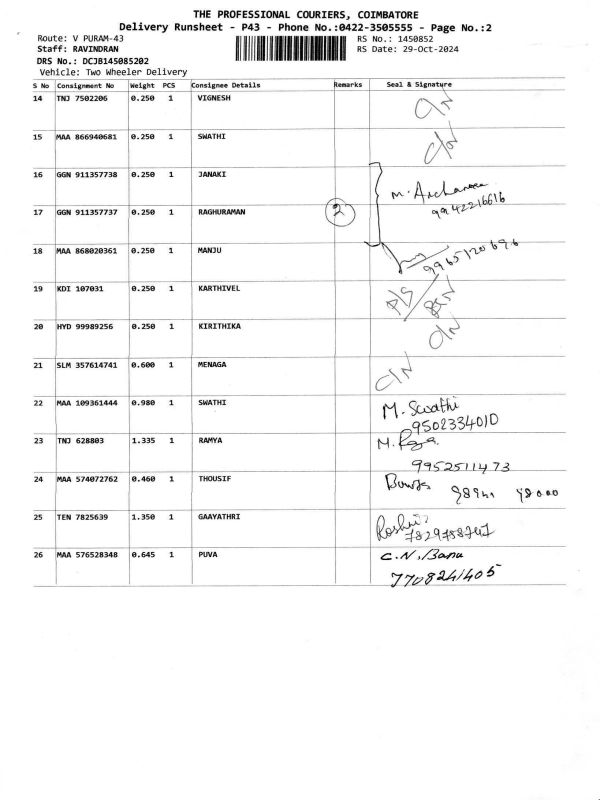 THE PROFESSIONAL COURIERS, COIMBATORE
Delivery Runsheet - P43 - Phone No.:0422-3505555 - Page No.:2
Route: V PURAM-43 RS No.: 1450852
Staff: RAVINDRAN RS Date: 29-Oct-2024
DRS No.: DCJB145085202
Vehicle: Two Wheeler Delivery
S No Consignment No Weight PCS Consignee Details Remarks Seal & Signature
14 TNJ 7502206 0.250 1 VIGNESH
15 MAA 866940681 0.250 1 SWATHI
16 GGN 911357738 0.250 1 JANAKI
M. Archanaa
9942216616
17 GGN 911357737 0.250 1 RAGHURAMAN 2
18 MAA 868020361 0.250 1 MANJU
9965120696
19 KDI 107031 0.250 1 KARTHIVEL P/S
20 HYD 99989256 0.250 1 KIRITHIKA
21 SLM 357614741 0.600 1 MENAGA C/N
22 MAA 109361444 0.980 1 SWATHI M. Swathi
9502334010
23 TNJ 628803 1.335 1 RAMYA M.
9952511473
24 MAA 574072762 0.460 1 THOUSIF
25 TEN 7825639 1.350 1 GAAYATHRI Roshni
7829788747
26 MAA 576528348 0.645 1 PUVA C.N.Banu
7708241405